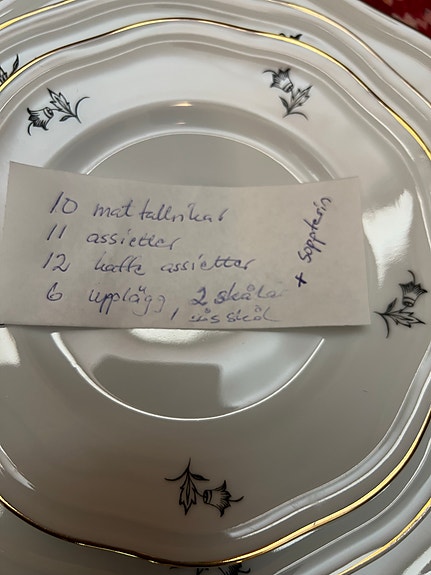 10 mattallrikar
11 assietter
12 kaffe assietter
6 upplägg, 2 skålar
sås skål
+ soppterin